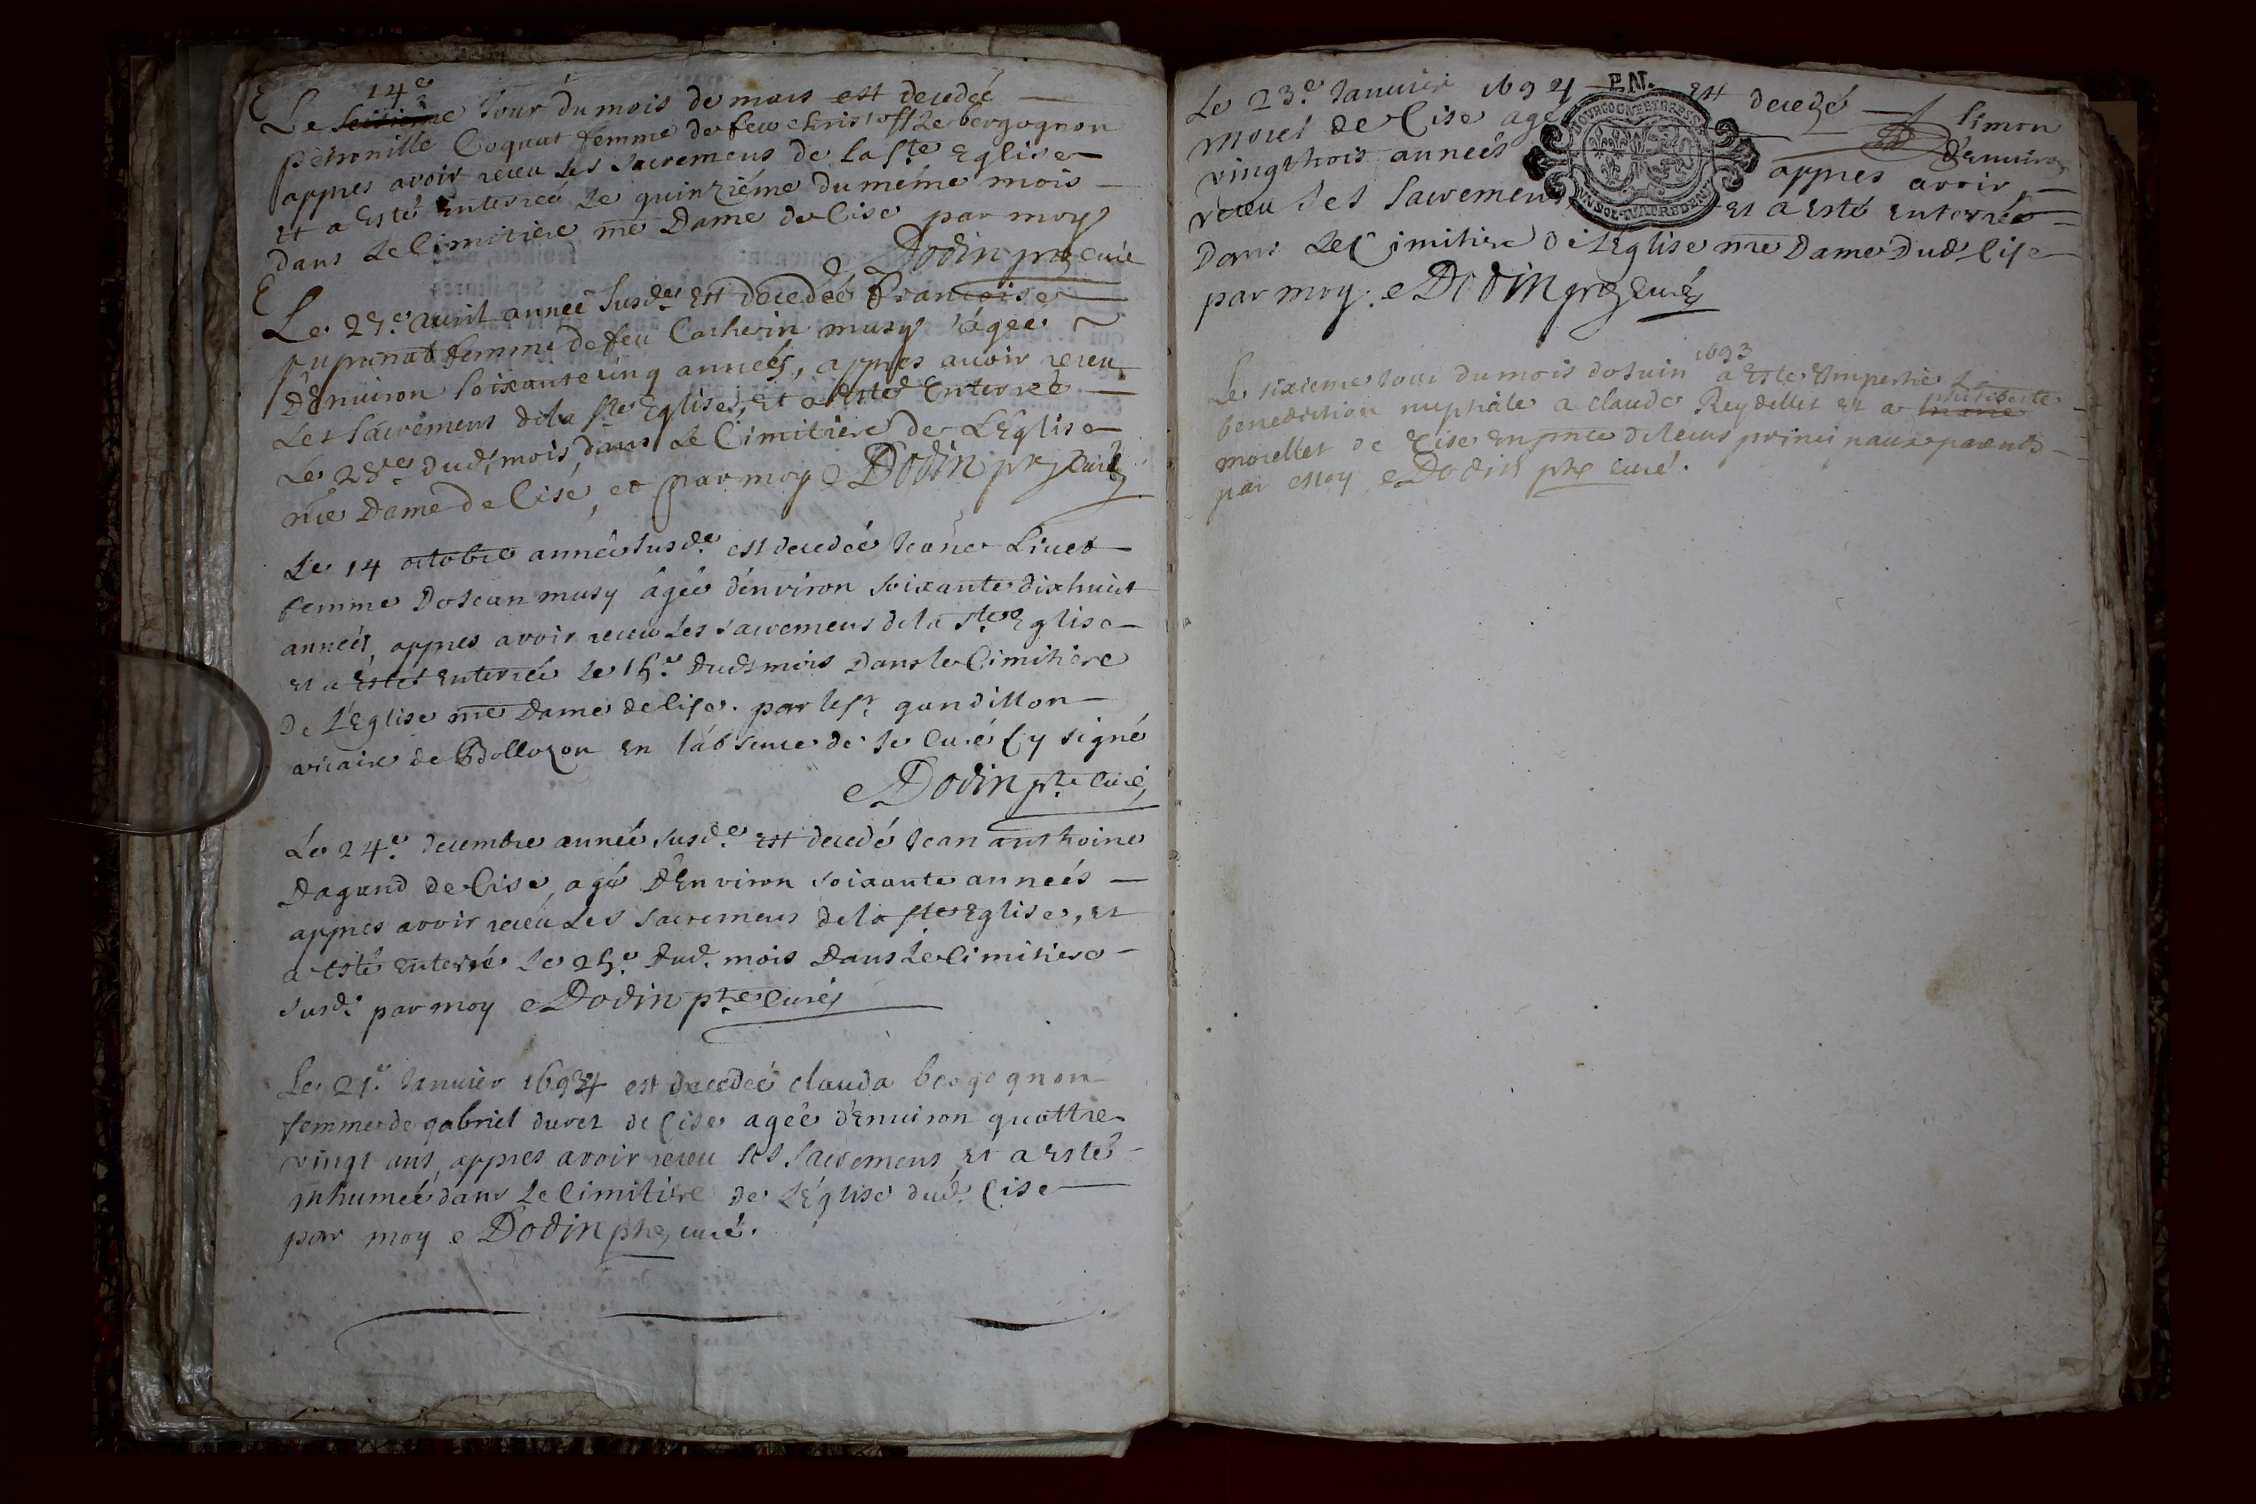 14e
Le seizieme Jour du mois de mars est decedeé
petronille Coquat femme de feu christoffle bergognon
appres avoir receu les sacremens de la Ste Eglise
et a Esté Enterreé Le quinziéme du méme mois
dans Le Cimitiere nre Dame de Cise par moy
Dodin pre curé
Le 27e avril anneé susde est decedeé Francoise
femme de feu Catherin musy ágeé
D'enuiron soixante cinq anneés, appres auoir receu
Les sacremens de la Ste Eglise, et a Esté Enterreé
Le 28e dud. mois dans Le Cimitiere de L'Eglise
nre Dame de Cise, et par moy Dodin pre curé
Le 14 octobre anneé susde est decedeé Jeane Liuet
femme de Jean musy ágeé d'environ soixante dixhuict
anneés, appres avoir receu Les sacremens de la Ste Eglise
et a Estes Enterreé Le 15e dud. mois Dans le Cimitiere
de L'Eglise nre Dame de Cise. par le sr gandillon
vicaire de Bolloʒon En l'absence de le Curé sy signé
Dodin pre curé
Le 24e decembre anneé susde est decedé Jean anthoine
Dagand de Cise, agé D'Environ soixante anneés
appres avoir receu Les sacremens de la Ste Eglise, et
a esté enterré Le 25e dud. mois Dans Le Cimitiere
susd. par moy Dodin pre Curé
Le 21e Janvier 1694 est decedeé clauda bergognon
femme de gabriel duret de Cise ageé d'Enuiron quattre
vingt ans, appres avoir receu ses sacremens, et a Esté
inhumeé dans Le Cimitiere de L'Eglise dud. Cise
par moy Dodin pre curé.
P.N.
Le 23e Januier 1694 est decedé simon
morel de Cise agé d'enuiron
vingt trois anneés appres avoir
receu ses sacremens, et a Esté enterré
Dans Le Cimitiere de L'Eglise nre Dame Dud. Cise
par moy. Dodin pre Curé
BOURGOGNE ET BRESSE
UN SOL QUATRE DEN
1693
Le sixieme Jour du mois de Juin a Esté Impertie La
benediction nuptiale a claude Reydellet et a philiberte
morellet de Cise En pnce de leurs principaux parents
par moy Dodin pre curé.